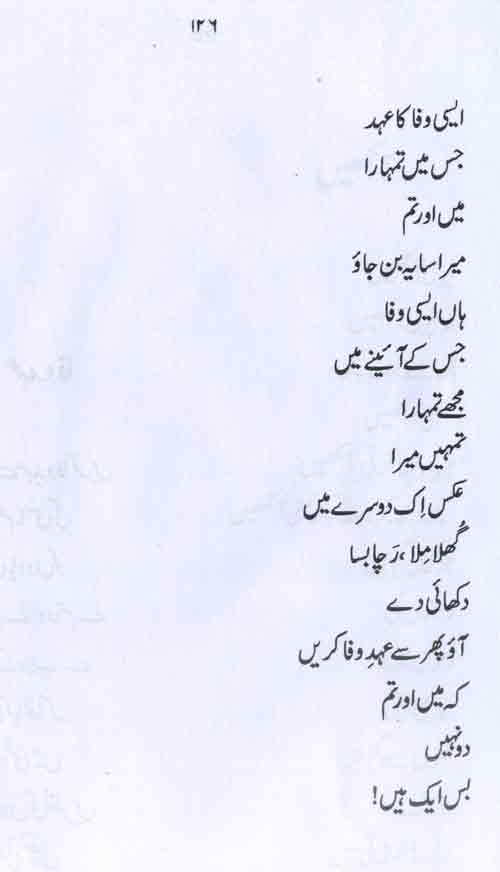 ۱۲۶
ایسی وفا کا عہد
جس میں تمہارا
میں اور تم
میرا سایہ بن جاؤ
ہاں ایسی وفا
جس کے آئینے میں
مجھے تمہارا
تمہیں میرا
عکس اِک دوسرے میں
گُھلا مِلا، رَچا بسا
دکھائی دے
آؤ پھر سے عہدِ وفا کریں
کہ میں اور تم
دو نہیں
بس ایک ہیں!